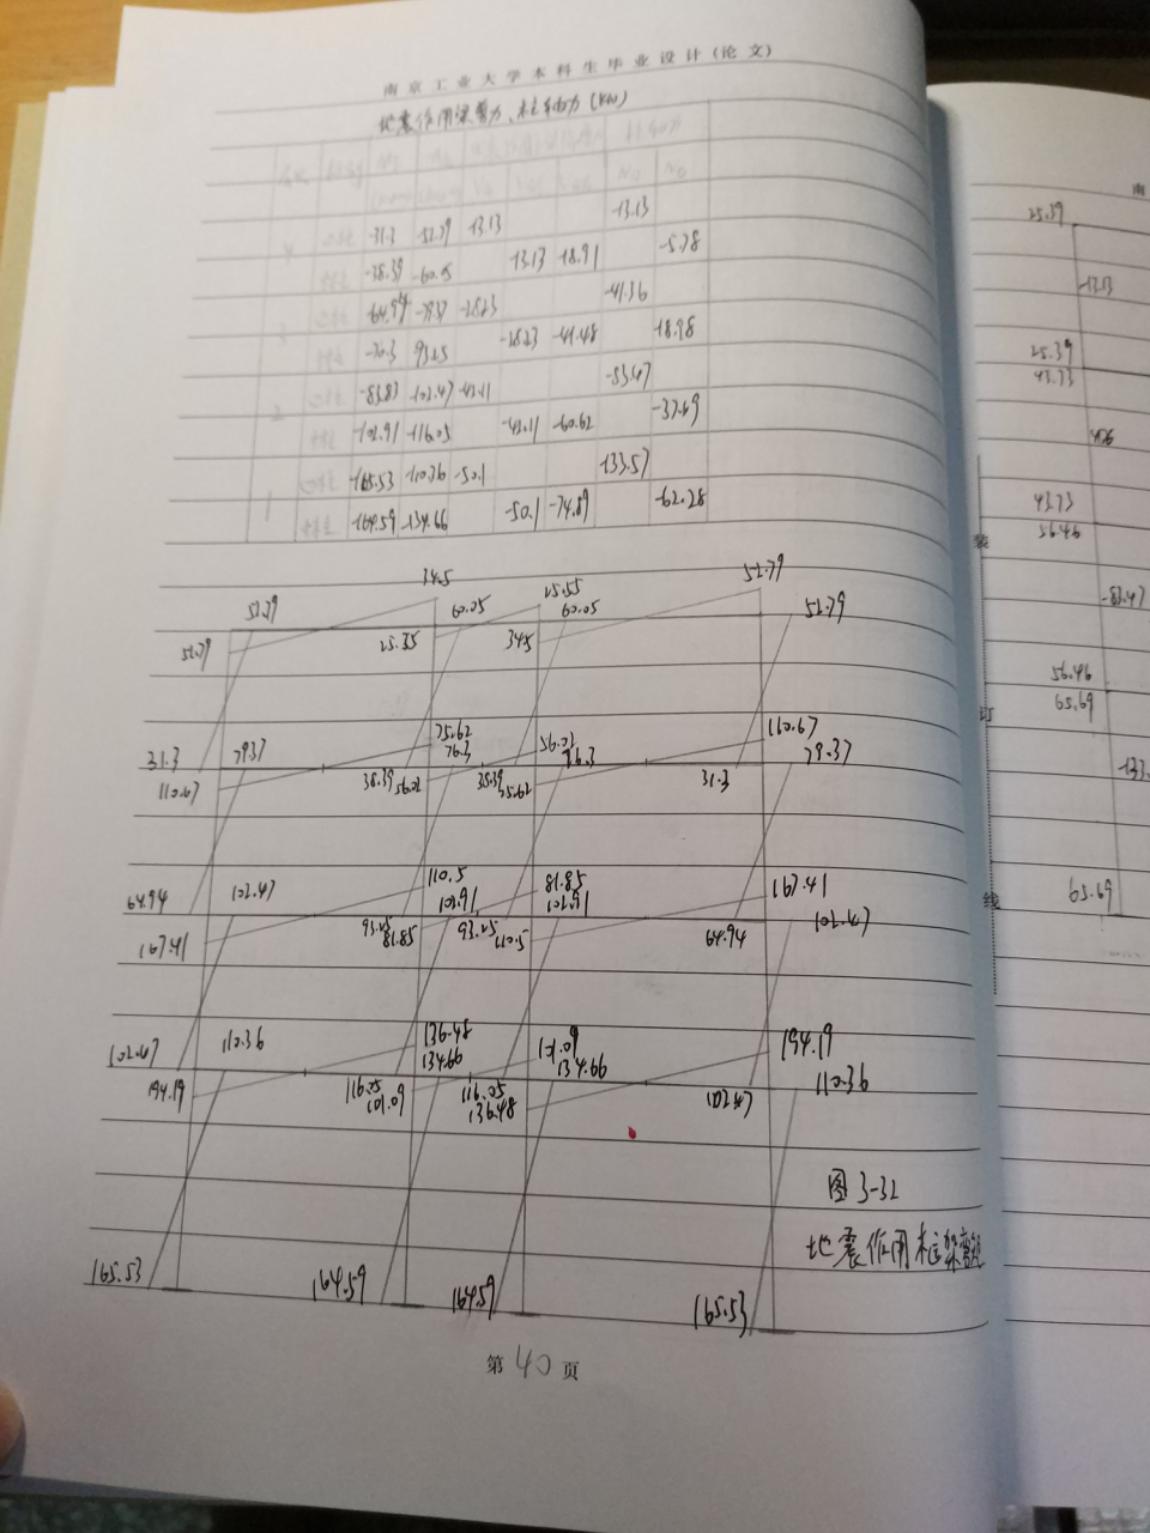 南京工业大学本科生毕业设计(论文)
地震作用梁剪力、柱轴力(KN)
-31.3 -52.79 -13.13 -13.13
-38.39 -60.05 -13.13 -18.91 -5.78
-64.94 -79.37 -28.23 -41.36
-76.3 93.25 -28.23 -41.48 -18.98
-83.83 -102.47 -42.11 -83.47
-102.91 -116.05 -42.11 -60.62 -37.69
1 -165.53 -110.36 -50.1 -133.57
-164.59 -134.66 -50.1 -74.89 -62.28
34.5 25.55 52.79
52.79 60.05 60.05 52.79
52.79 25.55 34.5
75.62 56.02 110.67
31.3 79.37 76.3 76.3 79.37
110.67 38.39 56.02 38.39 75.62 31.3
110.5 81.85 167.41
64.94 102.47 102.91 102.91 102.47
167.41 93.25 81.85 93.25 110.5 64.94
136.48 101.09 194.19
102.47 110.36 134.66 134.66 110.36
194.19 116.05 101.09 116.05 136.48 102.47
图 3-32
地震作用框架弯矩
165.53 164.59 164.59 165.53
第 40 页
南
25.39
-13.13
25.39
43.73
43.73
56.46
装
-83.47
56.46
65.69
订
-133.
65.69
线